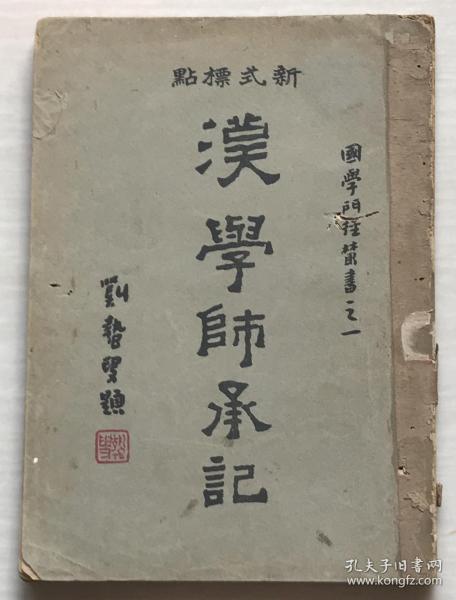 新式標點
國學門徑叢書之一
漢學師承記
劉蟄叟題
孔夫子旧书网
www.kongfz.com